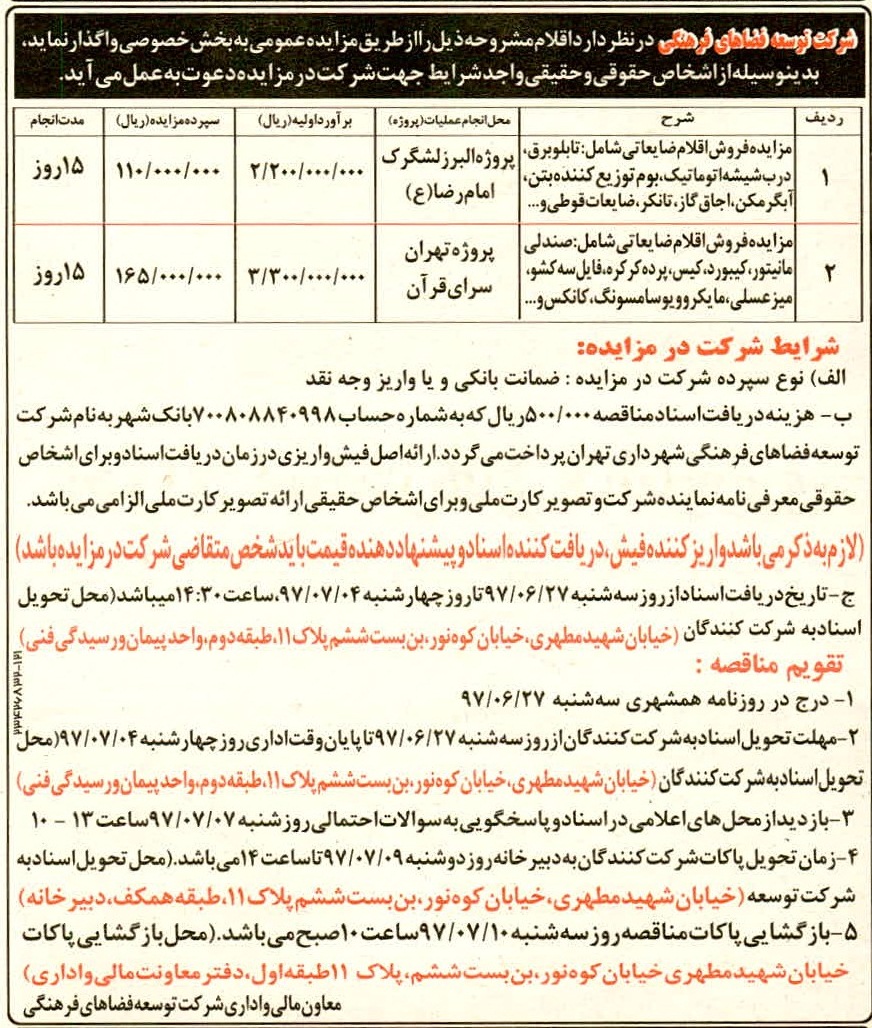 شرکت توسعه فضاهای فرهنگی در نظر دارد اقلام مشروحه ذیل را از طریق مزایده عمومی به بخش خصوصی واگذار نماید،
بدینوسیله از اشخاص حقوقی و حقیقی واجد شرایط جهت شرکت در مزایده دعوت به عمل می آید.
ردیف شرح محل انجام عملیات (پروژه) برآورد اولیه (ریال) سپرده مزایده (ریال) مدت انجام
۱
مزایده فروش اقلام ضایعاتی شامل: تابلو برق،
درب شیشه اتوماتیک، بوم توزیع کننده بتن،
آبگرمکن، اجاق گاز، تانکر، ضایعات قوطی و...
پروژه البرز لشگرک
امام رضا (ع)
۲/۲۰۰/۰۰۰/۰۰۰
۱۱۰/۰۰۰/۰۰۰
۱۵ روز
۲
مزایده فروش اقلام ضایعاتی شامل: صندلی
مانیتور، کیبورد، کیس، پرده کرکره، فایل سه کشو،
میز عسلی، مایکروویو سامسونگ، کانکس و...
پروژه تهران
سرای قرآن
۳/۳۰۰/۰۰۰/۰۰۰
۱۶۵/۰۰۰/۰۰۰
۱۵ روز
شرایط شرکت در مزایده:
الف) نوع سپرده شرکت در مزایده : ضمانت بانکی و یا واریز وجه نقد
ب- هزینه دریافت اسناد مناقصه ۵۰۰/۰۰۰ ریال که به شماره حساب ۷۰۰۸۰۸۸۴۰۹۹۸ بانک شهر به نام شرکت
توسعه فضاهای فرهنگی شهرداری تهران پرداخت می گردد. ارائه اصل فیش واریزی در زمان دریافت اسناد و برای اشخاص
حقوقی معرفی نامه نماینده شرکت و تصویر کارت ملی و برای اشخاص حقیقی ارائه تصویر کارت ملی الزامی می باشد.
(لازم به ذکر می باشد واریز کننده فیش، دریافت کننده اسناد و پیشنهاد دهنده قیمت باید شخص متقاضی شرکت در مزایده باشد)
ج- تاریخ دریافت اسناد از روز سه شنبه ۹۷/۰۶/۲۷ تا روز چهارشنبه ۹۷/۰۷/۰۴، ساعت ۱۴:۳۰ میباشد (محل تحویل
اسناد به شرکت کنندگان (خیابان شهید مطهری، خیابان کوه نور، بن بست ششم پلاک ۱۱، طبقه دوم، واحد پیمان و رسیدگی فنی)
تقویم مناقصه :
۱- درج در روزنامه همشهری سه شنبه ۹۷/۰۶/۲۷
۲- مهلت تحویل اسناد به شرکت کنندگان از روز سه شنبه ۹۷/۰۶/۲۷ تا پایان وقت اداری روز چهارشنبه ۹۷/۰۷/۰۴ (محل
تحویل اسناد به شرکت کنندگان (خیابان شهید مطهری، خیابان کوه نور، بن بست ششم پلاک ۱۱، طبقه دوم، واحد پیمان و رسیدگی فنی)
۳- بازدید از محل های اعلامی در اسناد و پاسخگویی به سوالات احتمالی روز شنبه ۹۷/۰۷/۰۷ ساعت ۱۳ - ۱۰
۴- زمان تحویل پاکات شرکت کنندگان به دبیرخانه روز دوشنبه ۹۷/۰۷/۰۹ تا ساعت ۱۴ می باشد. (محل تحویل اسناد به
شرکت توسعه (خیابان شهید مطهری، خیابان کوه نور، بن بست ششم پلاک ۱۱، طبقه همکف، دبیرخانه)
۵- بازگشایی پاکات مناقصه روز سه شنبه ۹۷/۰۷/۱۰ ساعت ۱۰ صبح می باشد. (محل بازگشایی پاکات
خیابان شهید مطهری خیابان کوه نور، بن بست ششم، پلاک ۱۱ طبقه اول، دفتر معاونت مالی و اداری)
معاون مالی و اداری شرکت توسعه فضاهای فرهنگی